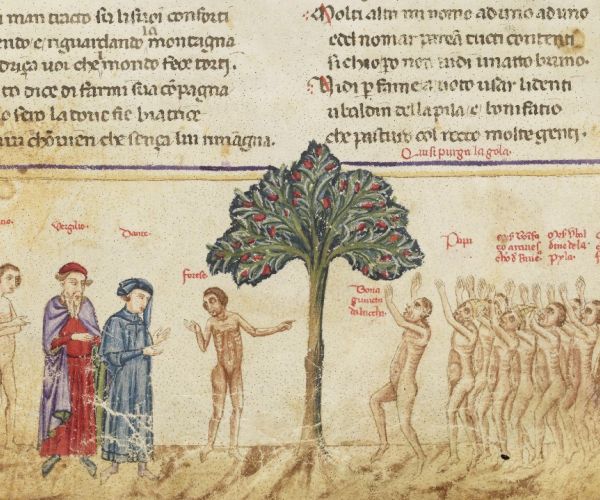 man tracto su li suoi conforti
endo e riguardando la montagna
driça voi chelmondo fece torti.
to dice di farmi sua cōpagna
sero la doue fie biatrice
chōuien che sença lui rimagna.
Molti altri mi nomo ad uno ad uno
e del nomar parean tucti contenti
si chio po non uidi un atto bruno.
Uidi p fame a uoto usar li denti
ubaldin della pila e bonifatio
che pasturo col rocco molte genti.
Qui si purga la gola.
Vergilio.
Dante.
forese
Bona
giunta
da luccha
Papa
Mess Bonifa
tio arciues
cho d Raue
Mess Ubal
dino de la
Pyla